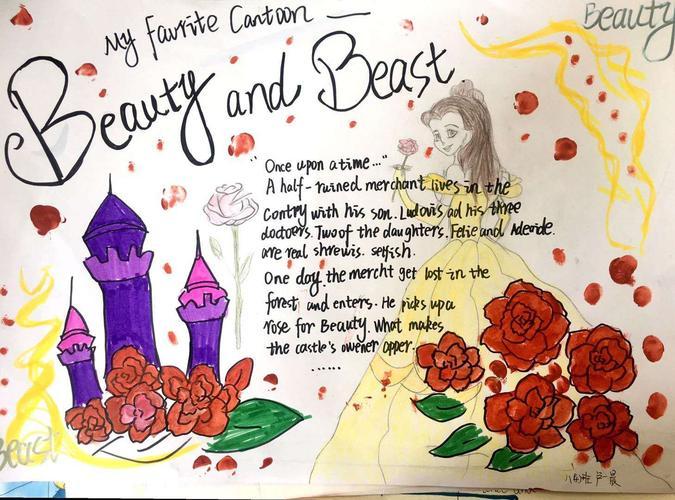 My Favrite Cantoon —
Beauty
Beauty and Beast
"Once upon a time..."
A half-ruined merchant lives in the
Contry with his son. Ludovis ad his three
doctoers. Two of the daughters. Felie and Adeaide.
are real shrewis. selfish.
One day, the mercht get lost in the
forest and enters. He picks up a
rose for Beauty. What makes
the castle's owener opper.
......
Beast